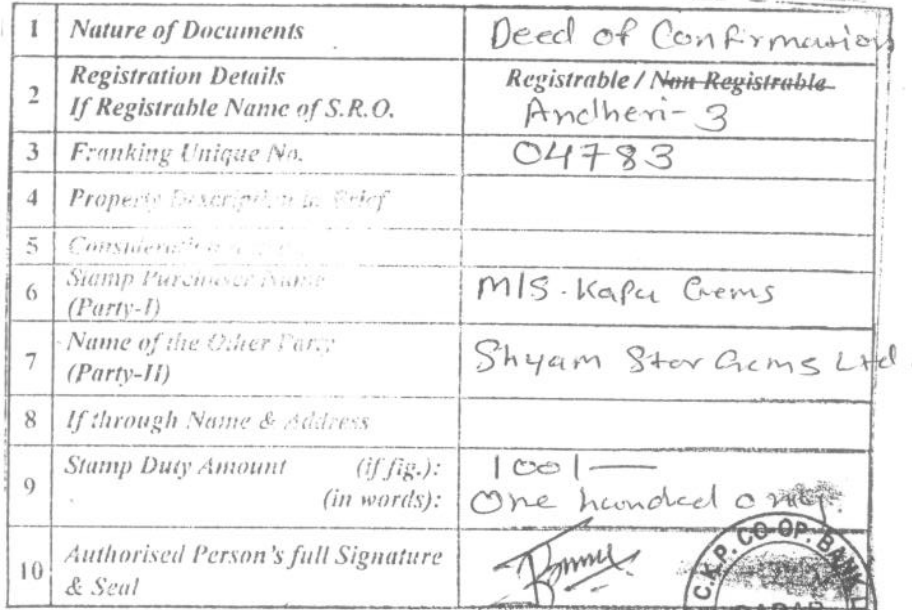 1 Nature of Documents Deed of Confirmation
2 Registration Details Registrable / Non Registrable
If Registrable Name of S.R.O. Andheri-3
3 Franking Unique No. 04783
4 Property Description in Brief
5 Consideration
6 Stamp Purchaser Name M/S. Kapu Gems
(Party-I)
7 Name of the Other Party Shyam Star Gems Ltd.
(Party-II)
8 If through Name & Address
9 Stamp Duty Amount (if fig.): 100/-
(in words): One hundred only.
10 Authorised Person's full Signature
& Seal
C.K.P. CO-OP. BANK